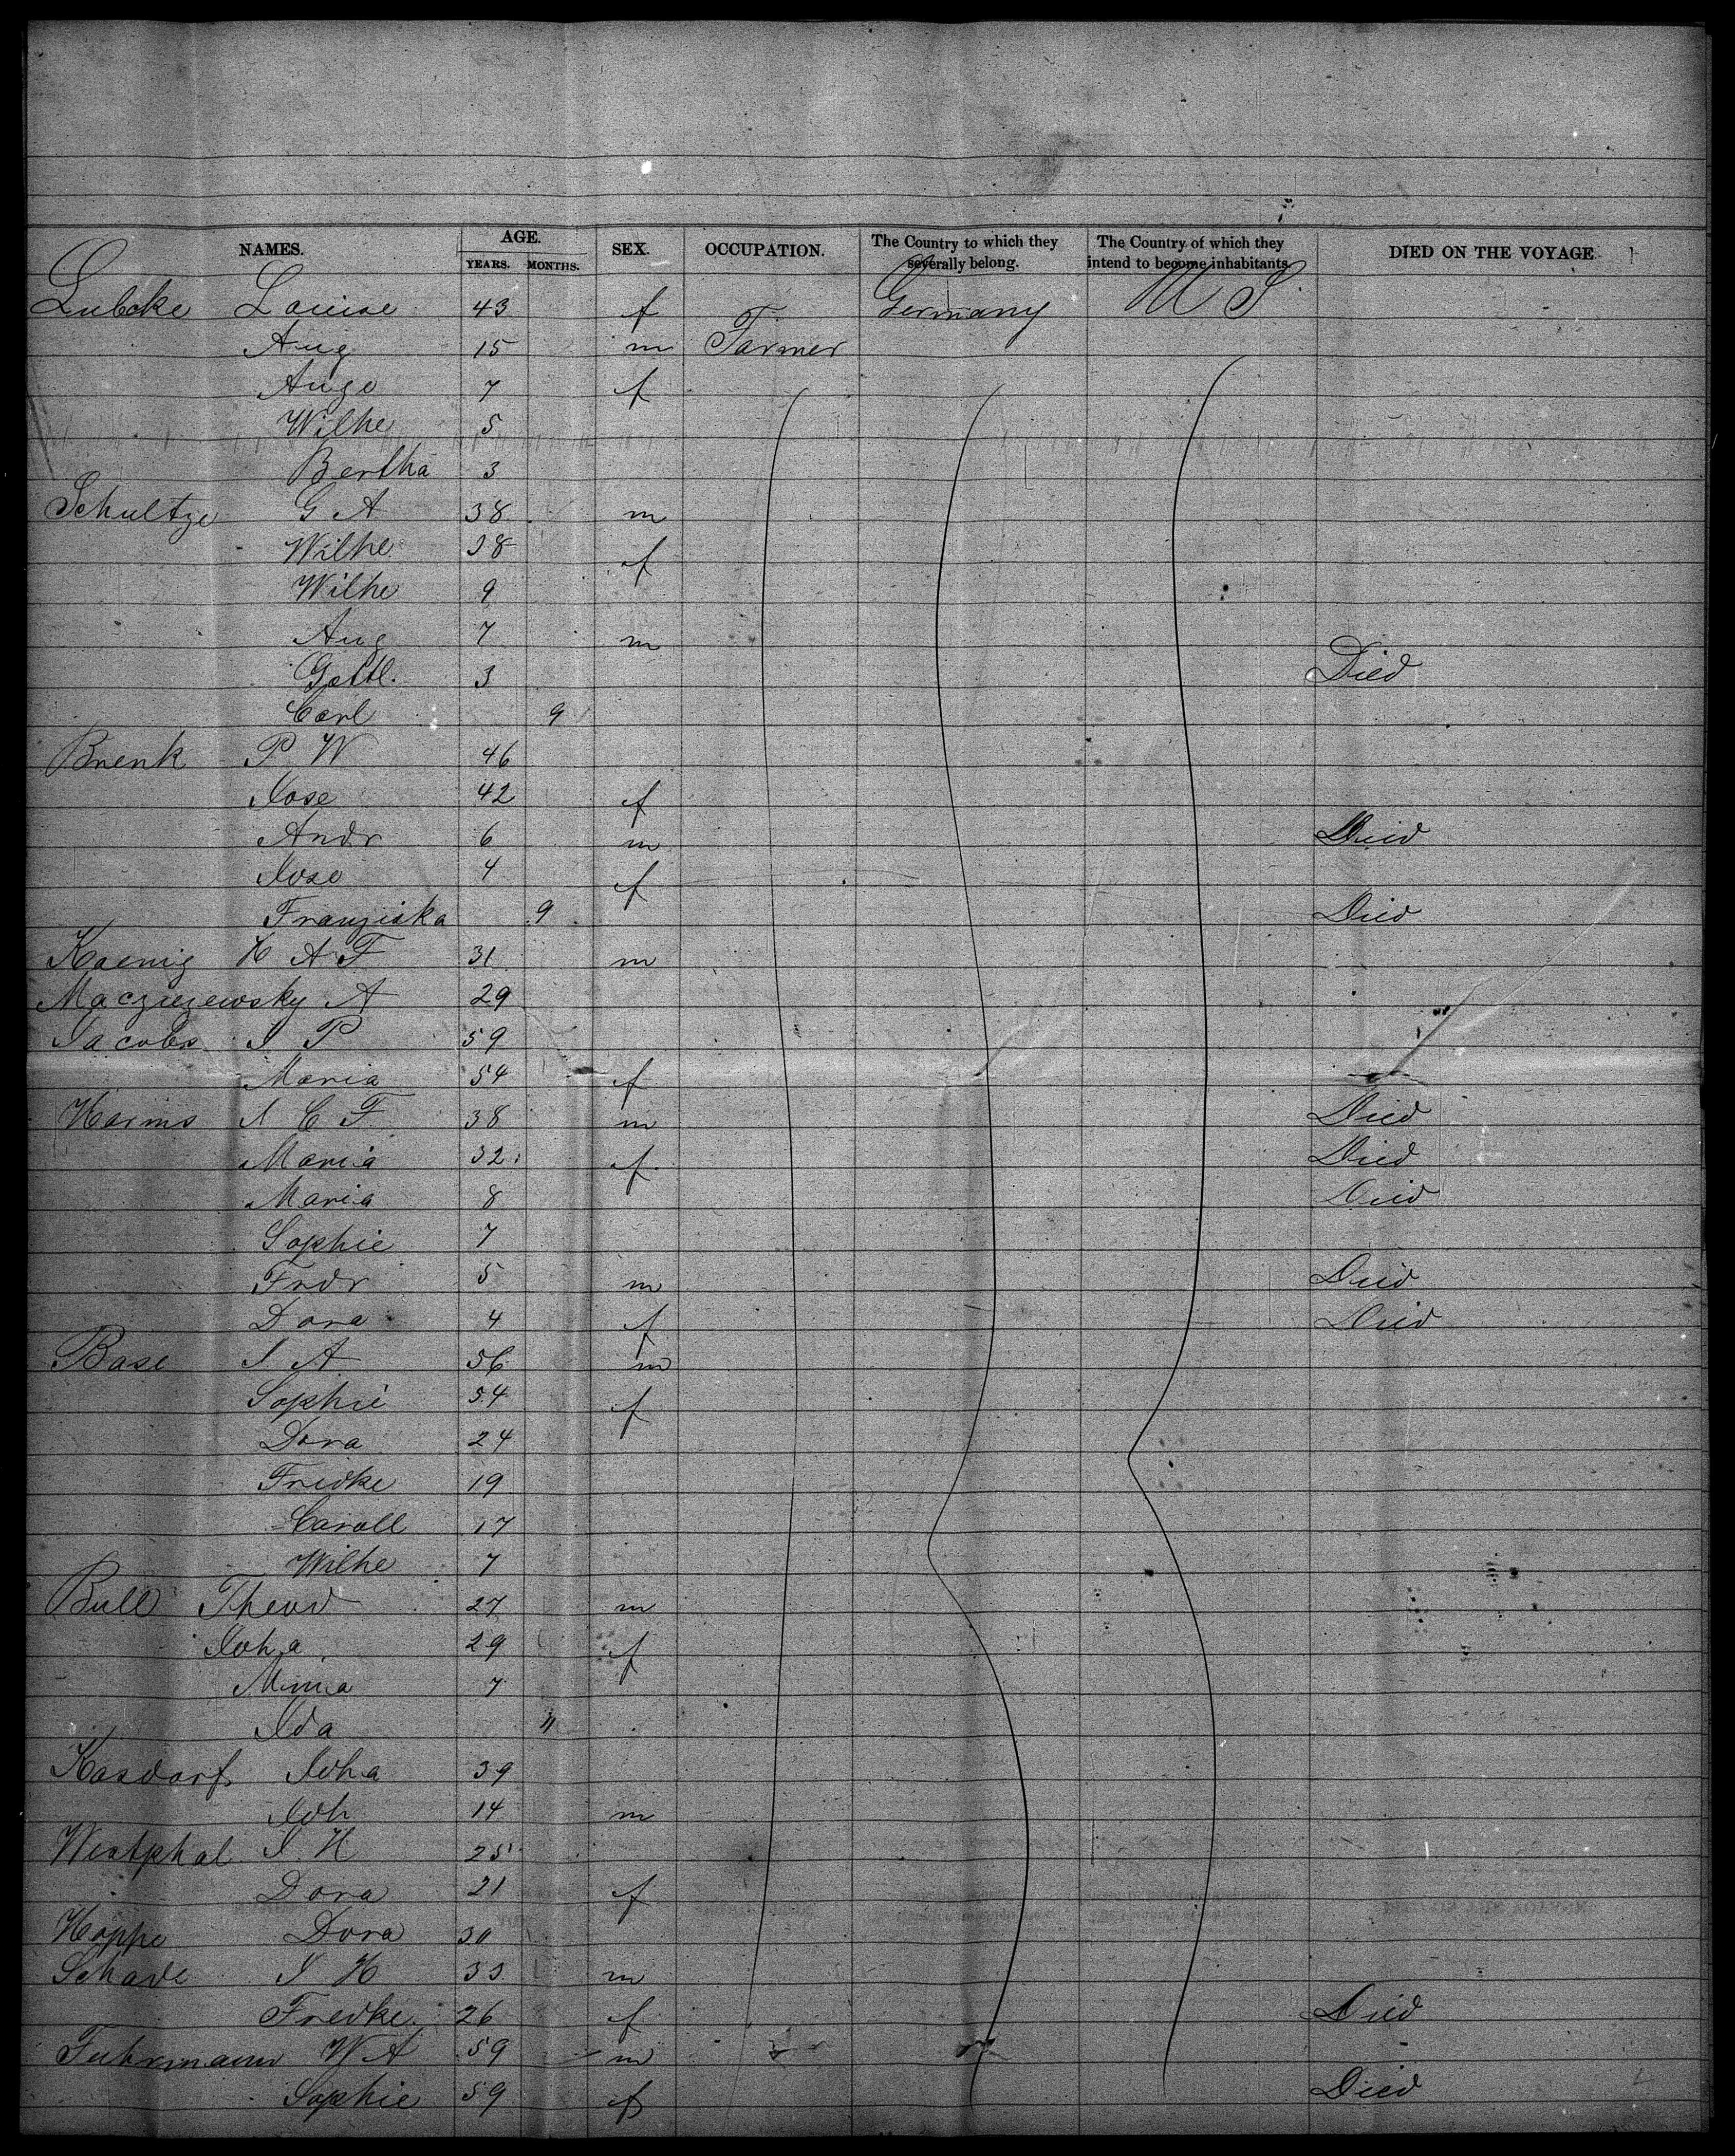 NAMES. AGE. SEX. OCCUPATION. The Country to which they severally belong. The Country of which they intend to become inhabitants. DIED ON THE VOYAGE
YEARS. MONTHS.
Lubcke Louise 43 f Germany U S.
Aug 15 m Farmer
Auge 7 f
Wilhe 5
Bertha 3
Schultze G A 38 m
Wilhe 38 f
Wilhe 9
Aug 7 m
Gottl. 3 Died
Carl 9
Brenk P W 46
Jose 42 f
Andr 6 m Died
Jose 4 f
Franziska 9 Died
Koenig H A F 31 m
Macziezewsky A 29
Jacobs J P 59
Maria 54 f
Harms J C F 38 m Died
Maria 32 f Died
Maria 8 Died
Sophie 7
Frdr 5 m Died
Dora 4 f Died
Base J A 56 m
Sophie 54 f
Dora 24
Fridke 19
Caroll 17
Wilhe 7
Bull Theod 27 m
Joha 29 f
Minna 7
Ida 11
Kasdorf Joha 39
Joh 14 m
Westphal J H 25
Dora 21 f
Hoppe Dora 30
Schade J H 33 m
Fredke 26 f Died
Fuhrmann W A 59 m
Sophie 59 f Died